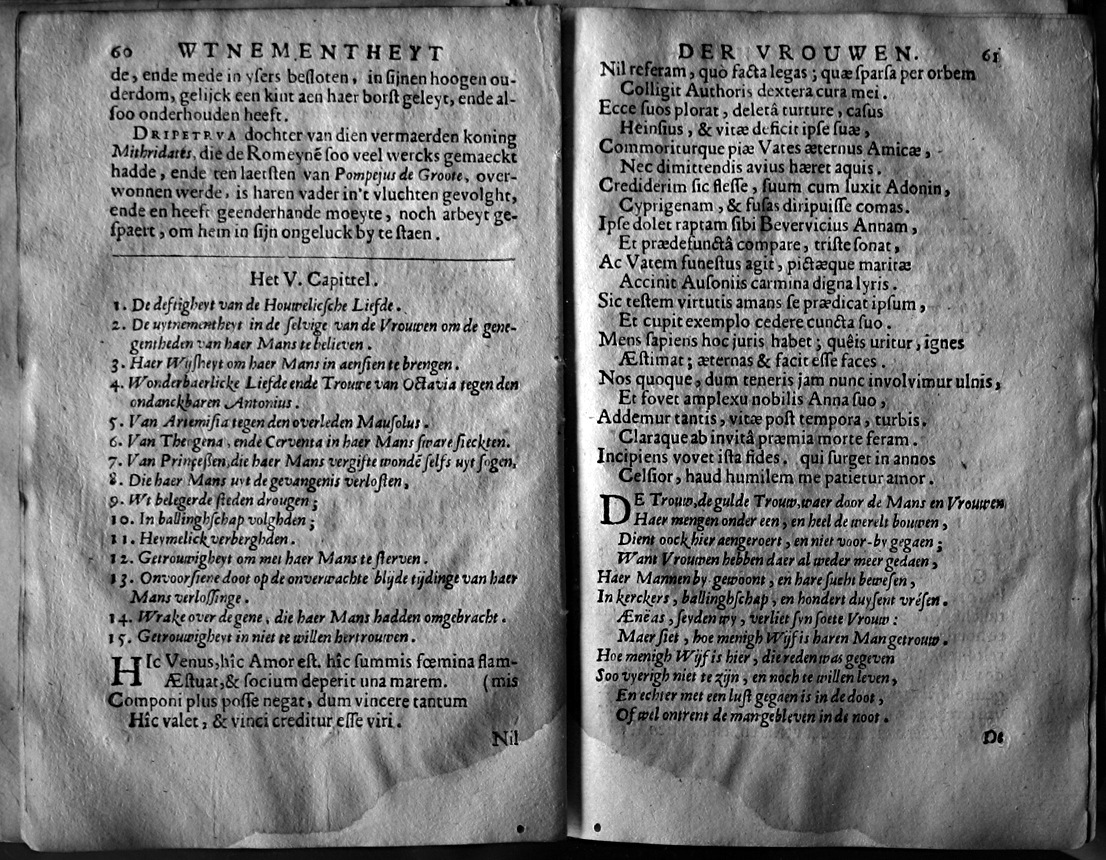 60 WTNEMENTHEYT
de, ende mede in yſers beſloten, in ſijnen hoogen ou-
derdom, gelijck een kint aen haer borſt geleyt, ende al-
ſoo onderhouden heeft.
DRIPETRVA dochter van dien vermaerden koning
Mithridates, die de Romeynē ſoo veel wercks gemaeckt
hadde, ende ten laetſten van Pompejus de Groote, over-
wonnen werde, is haren vader in't vluchten gevolght,
ende en heeft geenderhande moeyte, noch arbeyt ge-
ſpaert, om hem in ſijn ongeluck by te ſtaen.
Het V. Capittel.
1. De deftigheyt van de Houwelicſche Liefde.
2. De uytnementheyt in de ſelvige van de Vrouwen om de gene-
gentheden van haer Mans te believen.
3. Haer Wijſheyt om haer Mans in aenſien te brengen.
4. Wonderbaerlicke Liefde ende Trouwe van Octavia tegen den
ondanckbaren Antonius.
5. Van Artemiſia tegen den overleden Mauſolus.
6. Van Theogena, ende Cerventa in haer Mans ſware ſieckten.
7. Van Princeſſen, die haer Mans vergifte wondē ſelfs uyt ſogen.
8. Die haer Mans uyt de gevangenis verloſten,
9. Wt belegerde ſteden drougen;
10. In ballinghſchap volghden;
11. Heymelick verberghden.
12. Getrouwigheyt om met haer Mans te ſterven.
13. Onvoorſiene doot op de onverwachte blijde tijdinge van haer
Mans verloſſinge.
14. Wrake over de gene, die haer Mans hadden omgebracht.
15. Getrouwigheyt in niet te willen hertrouwen.
HIc Venus, hîc Amor eſt. hîc ſummis fœmina flam-
Æſtuat, & ſocium deperit una marem. (mis
Componi plus poſſe negat, dum vincere tantum
Hîc valet, & vinci creditur eſſe viri.
Nil
DER VROUWEN. 61
Nil referam, quò facta legas; quæ ſparſa per orbem
Colligit Authoris dextera cura mei.
Ecce ſuos plorat, deletâ turture, caſus
Heinſius, & vitæ deficit ipſe ſuæ,
Commoriturque piæ Vates æternus Amicæ,
Nec dimittendis avius hæret aquis.
Crediderim ſic fleſſe, ſuum cum luxit Adonin,
Cyprigenam, & fuſas diripuiſſe comas.
Ipſe dolet raptam ſibi Bevervicius Annam,
Et prædefunctâ compare, triſte ſonat,
Ac Vatem funeſtus agit, pictæque maritæ
Accinit Auſoniis carmina digna lyris.
Sic teſtem virtutis amans ſe prædicat ipſum,
Et cupit exemplo cedere cuncta ſuo.
Mens ſapiens hoc juris habet; quêis uritur, ignes
Æſtimat; æternas & facit eſſe faces.
Nos quoque, dum teneris jam nunc involvimur ulnis,
Et fovet amplexu nobilis Anna ſuo,
Addemur tantis, vitæ poſt tempora, turbis.
Claraque ab invitâ præmia morte feram.
Incipiens vovet iſta fides, qui ſurget in annos
Celſior, haud humilem me patietur amor.
DE Trouw, de gulde Trouw, waer door de Mans en Vrouwen
Haer mengen onder een, en heel de werelt bouwen,
Dient oock hier aengeroert, en niet voor-by gegaen;
Want Vrouwen hebben daer al weder meer gedaen,
Haer Mannen by gewoont, en hare ſucht beweſen,
In kerckers, ballinghſchap, en hondert duyſent vréſen.
Ænëas, ſeyden wy, verliet ſyn ſoete Vrouw:
Maer ſiet, hoe menigh Wijf is haren Man getrouw.
Hoe menigh Wijf is hier, die reden was gegeven
Soo vyerigh niet te zijn, en noch te willen leven,
En echter met een luſt gegaen is in de doot,
Of wel ontrent de man gebleven in de noot.
De